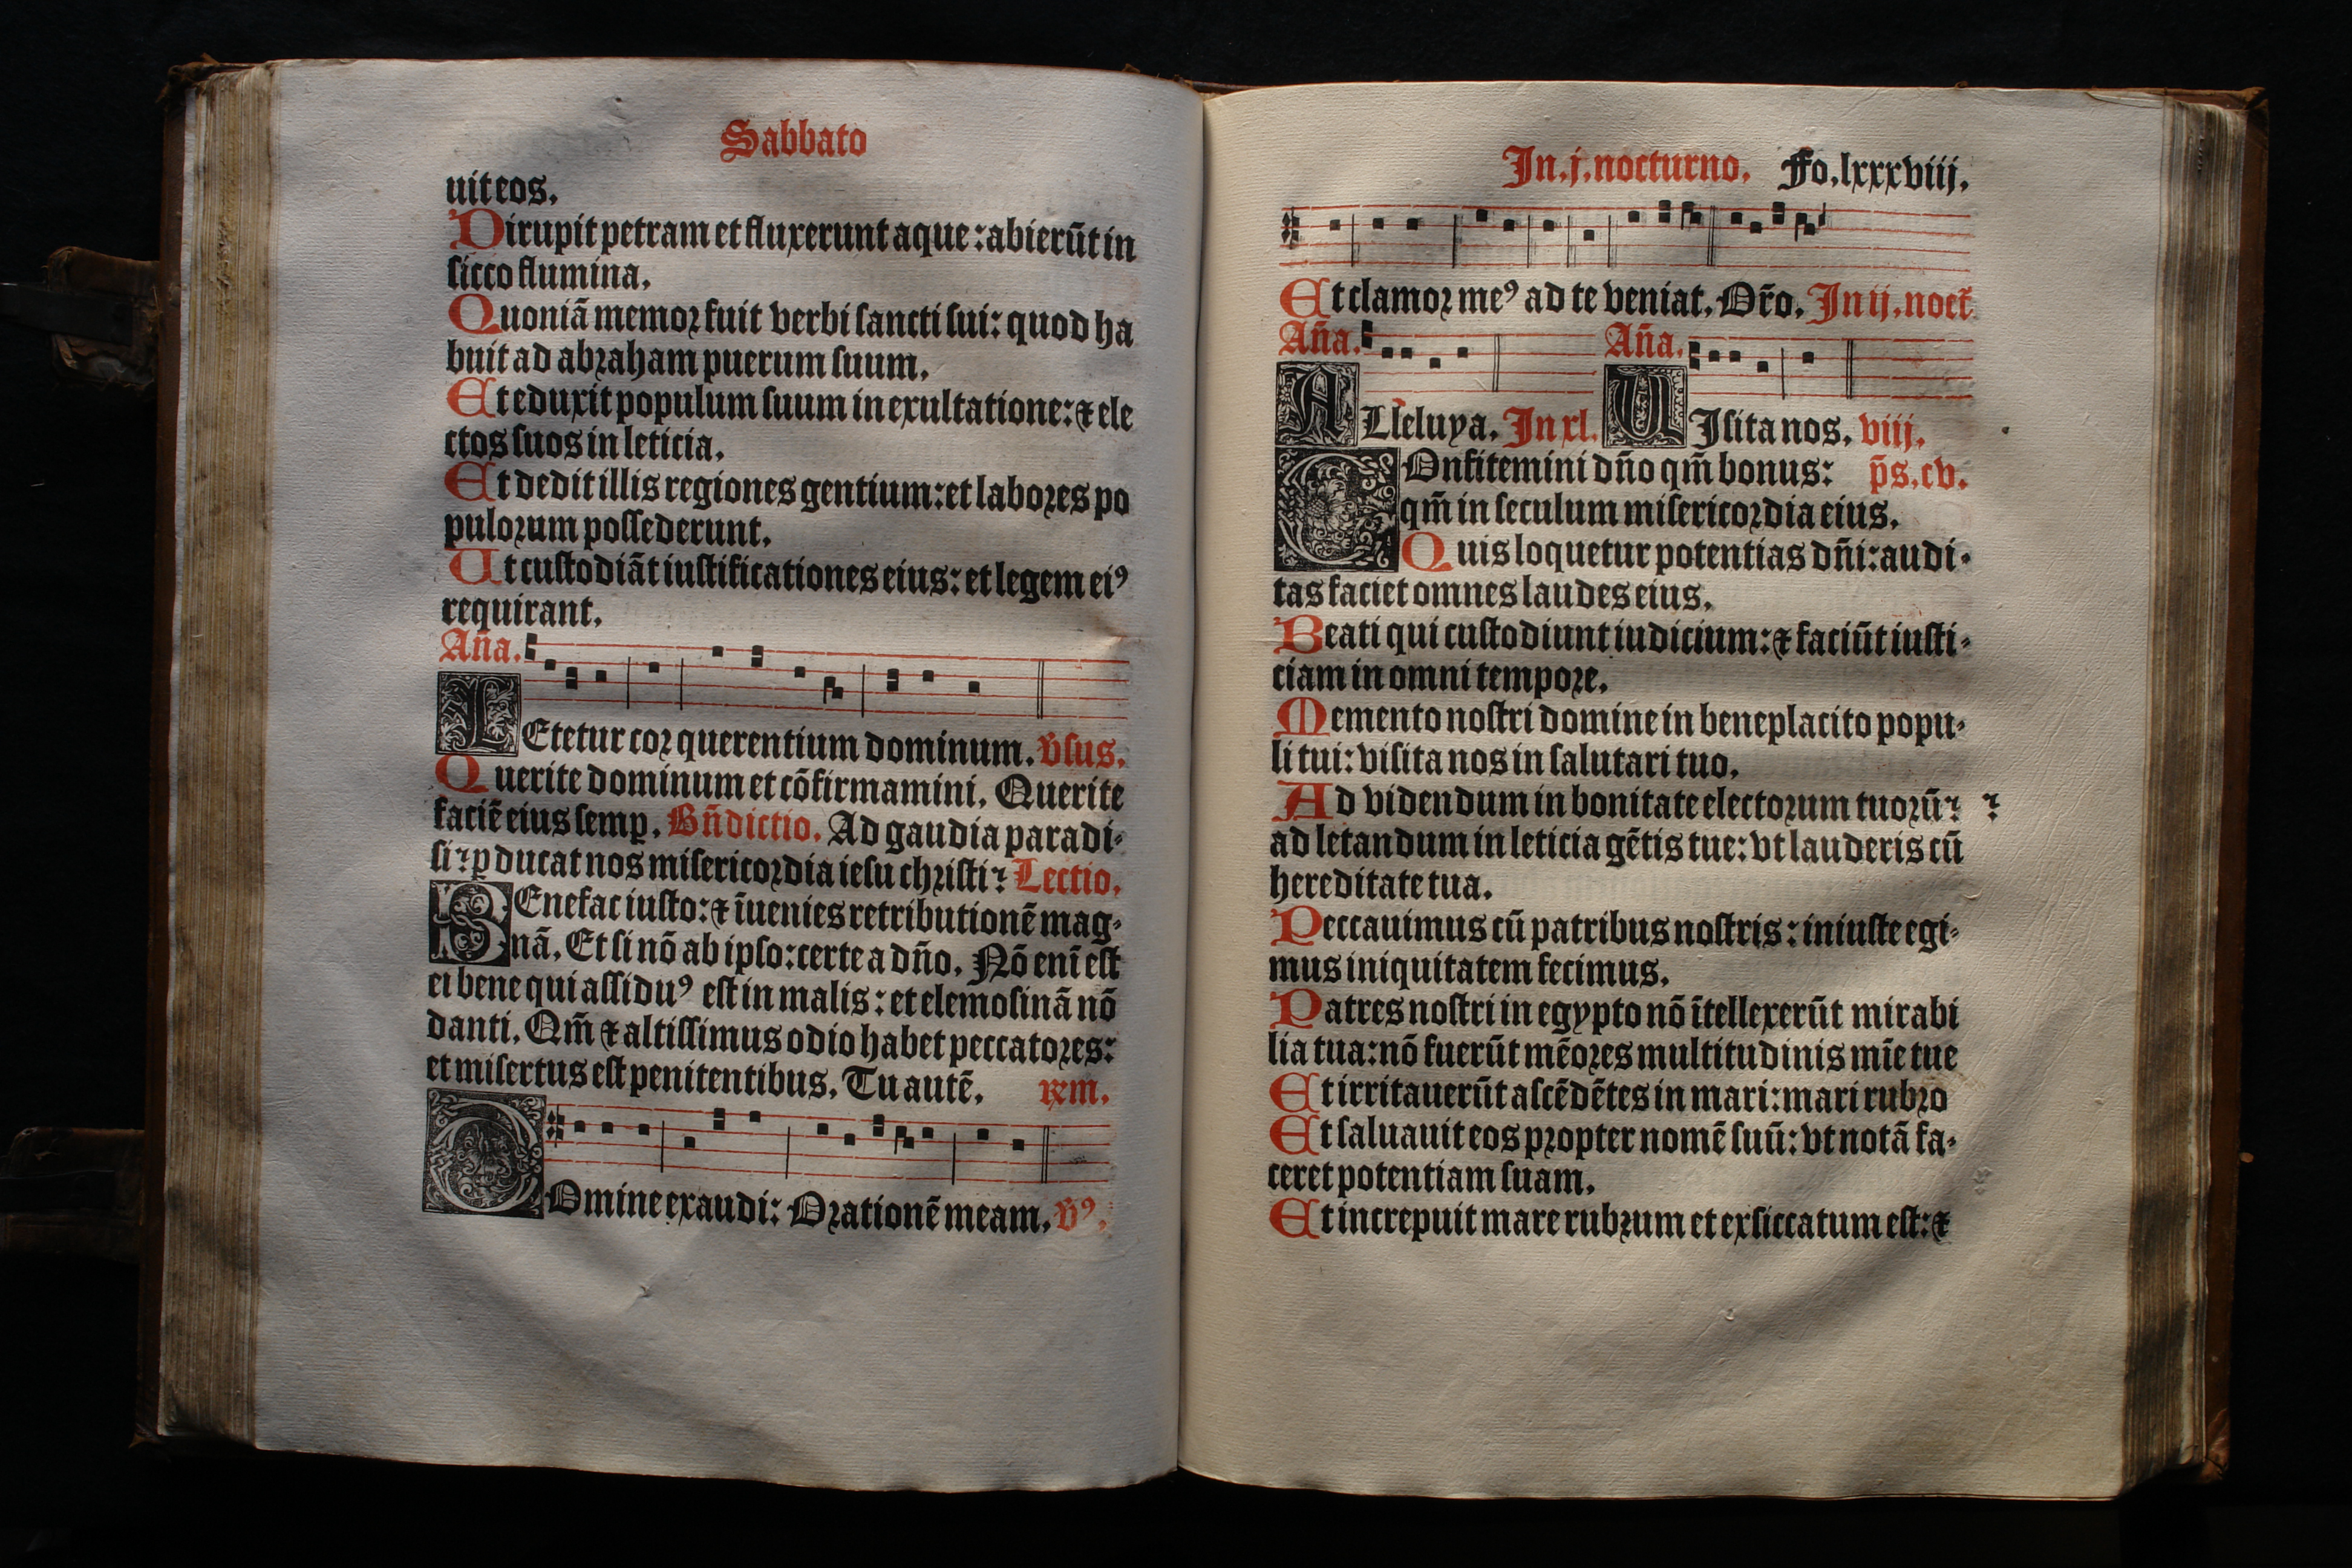 Sabbato
uit eos.
Dirupit petram et fluxerunt aque: abierūt in
sicco flumina.
Quoniā memor fuit verbi sancti sui: quod ha
buit ad abraham puerum suum.
Et eduxit populum suum in exultatione: ⁊ ele
ctos suos in leticia.
Et dedit illis regiones gentium: et labores po
pulorum possederunt.
Ut custodiāt iustificationes eius: et legem eiꝰ
requirant.
An̄a.
LEtetur cor querentium dominum. v̄sus.
Querite dominum et cōfirmamini. Querite
faciē eius semꝑ. Bn̄dictio. Ad gaudia paradi-
si ꝑducat nos misericordia iesu christi Lectio.
BEnefac iusto: ⁊ īuenies retributionē mag-
nā. Et si nō ab ipso: certe a dn̄o. Nō enī est
ei bene qui assiduꝰ est in malis: et elemosinā nō
danti. Qm̄ ⁊ altissimus odio habet peccatores:
et misertus est penitentibus. Tu autē. ꝶm.
DOmine exaudi: Orationē meam. v̄ꝰ.
In.j.nocturno. Fo.lxxxviij.
Et clamor meꝰ ad te veniat. Or̄o. In ij. noct̄
An̄a. An̄a.
ALleluya. In xl. UIsita nos. viij.
COnfitemini dn̄o qm̄ bonus: p̄s. cv.
qm̄ in seculum misericordia eius.
Quis loquetur potentias dn̄i: audi-
tas faciet omnes laudes eius.
Beati qui custodiunt iudicium: ⁊ faciūt iusti-
ciam in omni tempore.
Memento nostri domine in beneplacito popu-
li tui: visita nos in salutari tuo.
Ad videndum in bonitate electorum tuorū
ad letandum in leticia gētis tue: vt lauderis cū
hereditate tua.
Peccauimus cū patribus nostris: iniuste egi-
mus iniquitatem fecimus.
Patres nostri in egypto nō ītellexerūt mirabi
lia tua: nō fuerūt mēores multitudinis mīe tue
Et irritauerūt ascēdētes in mari: mari rubro
Et saluauit eos propter nomē suū: vt notā fa-
ceret potentiam suam.
Et increpuit mare rubrum et exsiccatum est: ⁊